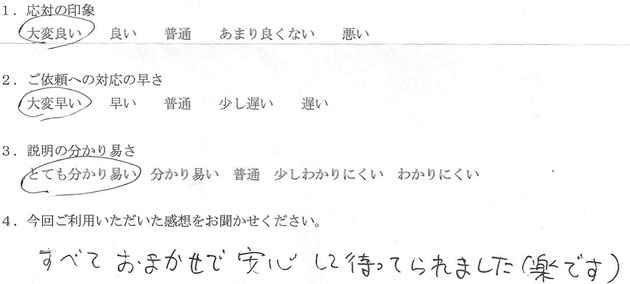 1．応対の印象
大変良い　良い　普通　あまり良くない　悪い
2．ご依頼への対応の早さ
大変早い　早い　普通　少し遅い　遅い
3．説明の分かり易さ
とても分かり易い　分かり易い　普通　少しわかりにくい　わかりにくい
4．今回ご利用いただいた感想をお聞かせください。
すべておまかせで安心して待ってられました（楽です）